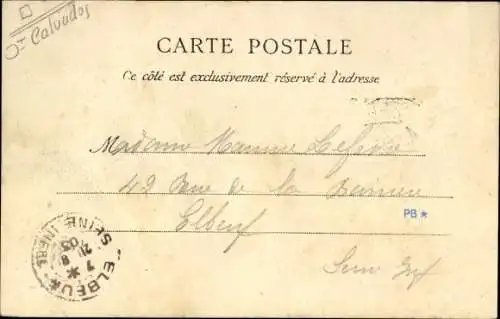 Calvados
CARTE POSTALE
Ce côté est exclusivement réservé à l'adresse
Madame
42 Rue de la
Elbeuf
Seine Inf
PB *
ELBEUF
SEINE INFRE
7 *
8
03